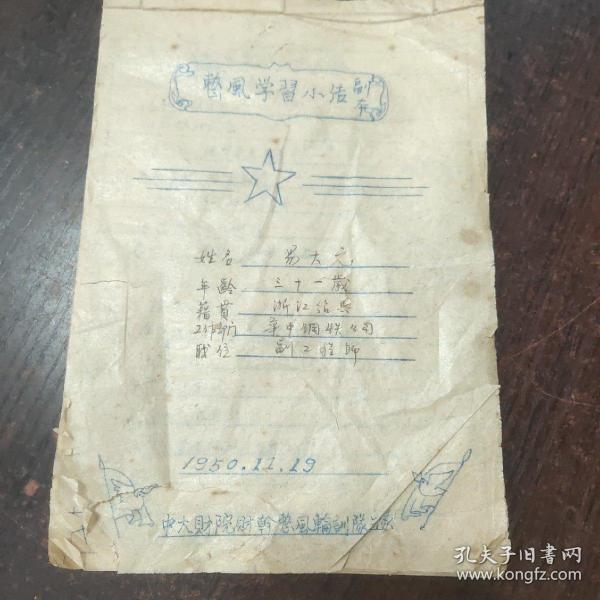 整風学習小结 副本
姓名 易大六
年齡 三十一歲
籍貫 浙江绍兴
工作部门 華中鋼铁公司
職位 副工程師
1950.11.19
中大財院財幹整風輪訓隊
孔夫子旧书网
www.kongfz.com